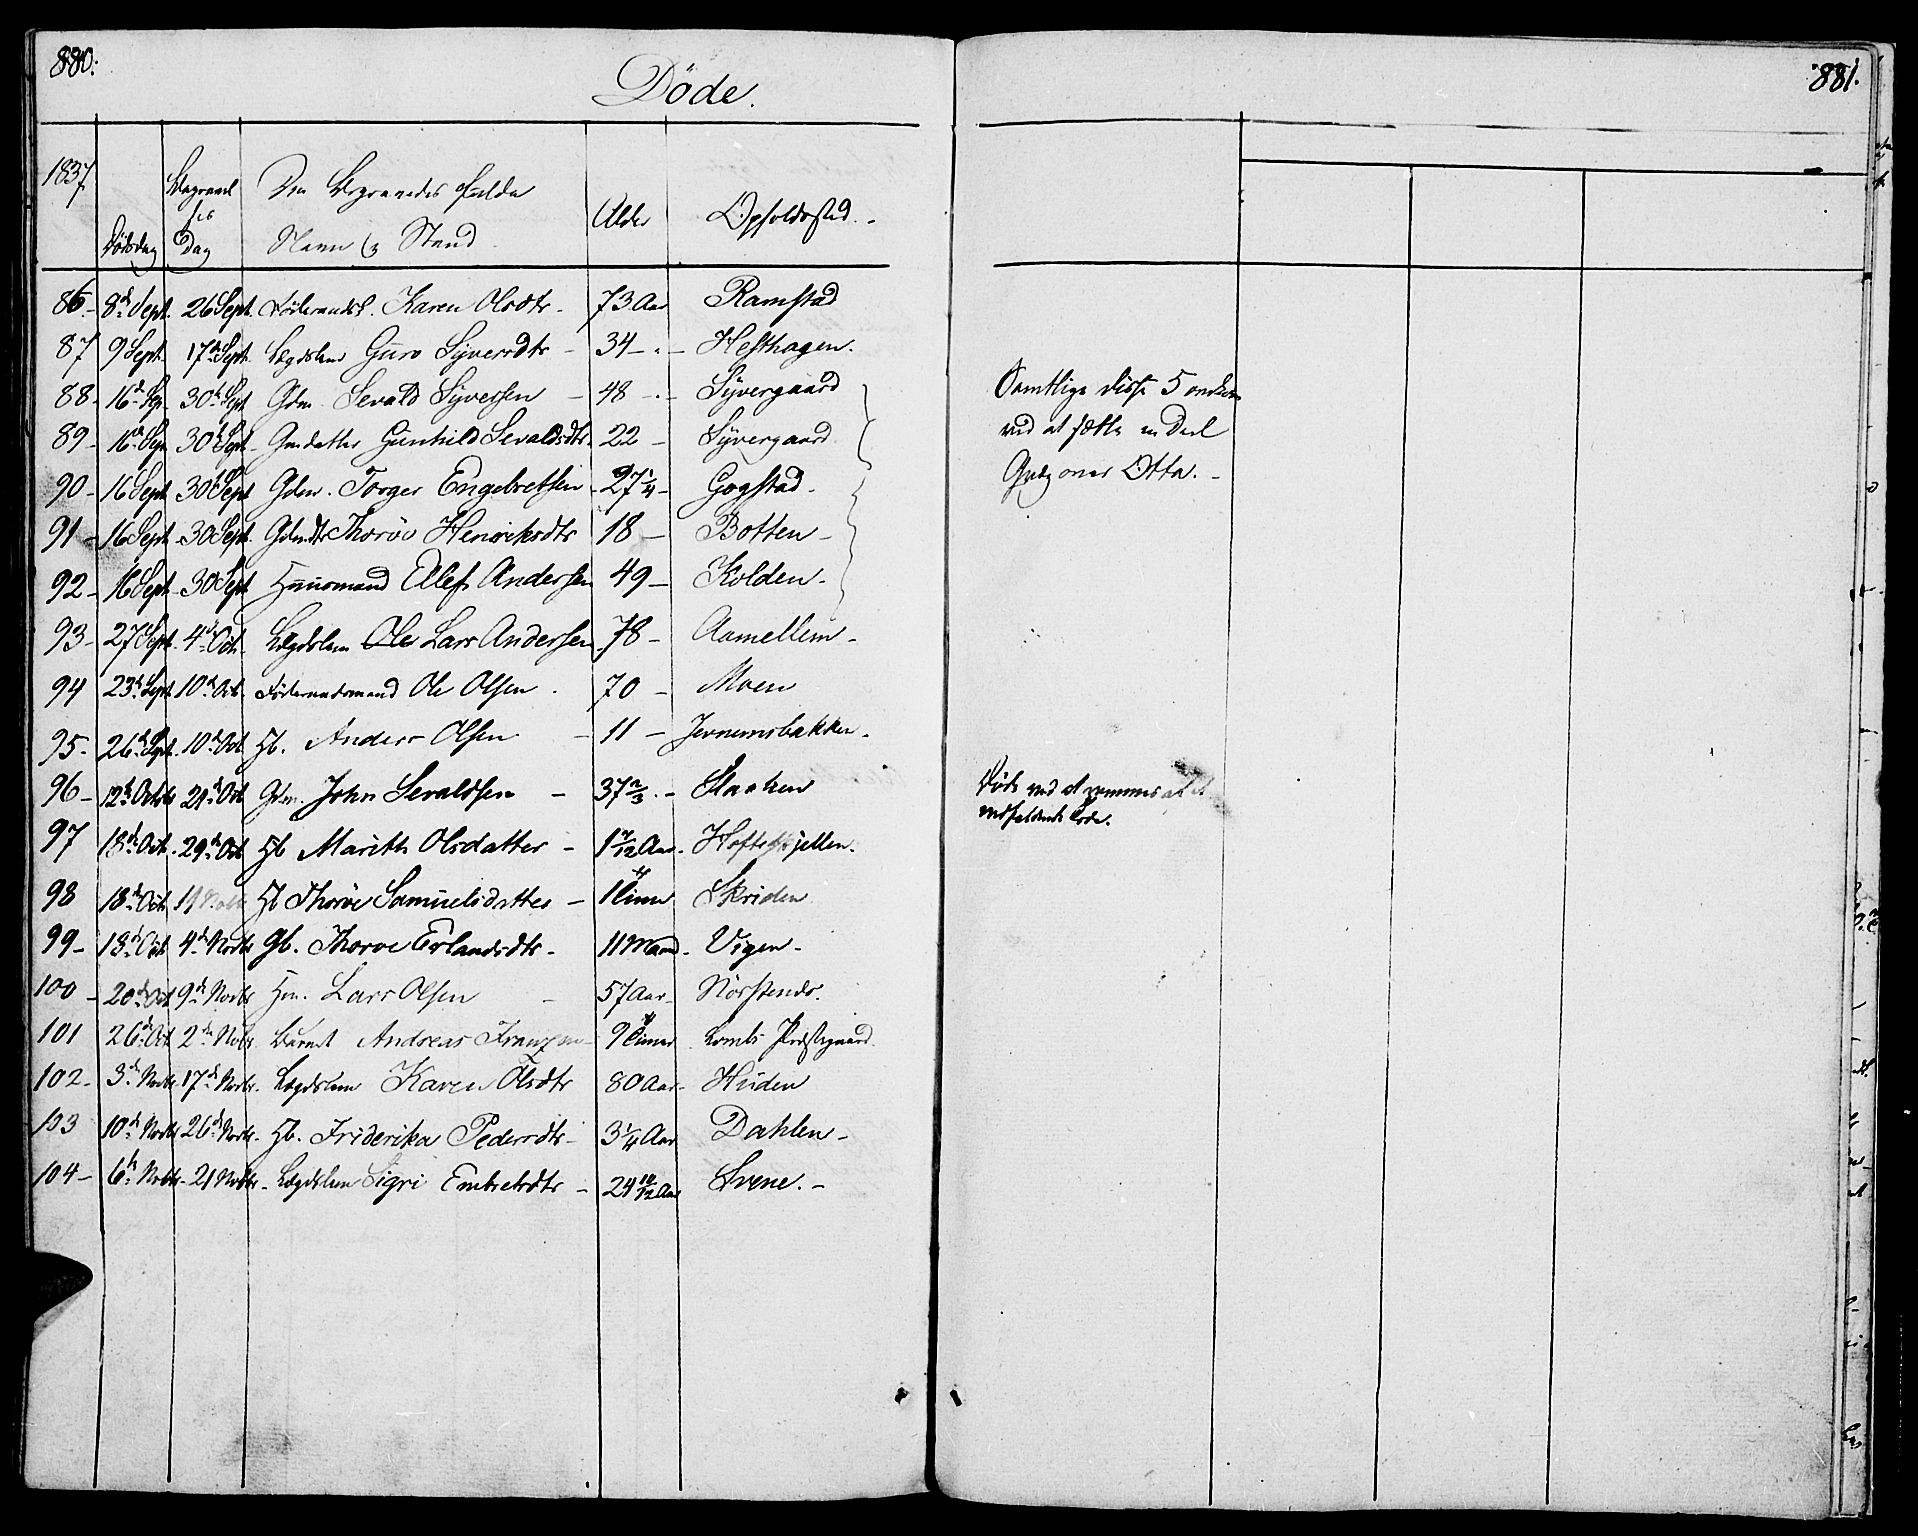 880.
Döde.
1837
Dödsdag
Begravelses Dag
Den Begravedes fulde
Navn og Stand
Alder
Opholdssted.
86 - 8de Sept. 26 Sept. Föderaadsk. Karen Olsdtr - 73 Aar Ramstad
87 9 Sept. 17de Sept. Lægdslem Guro Syversdtr - 34 - Hesthagen.
88 - 16de Sep. 30te Sept. Gdm. Sevald Syversen - 48 - Syvergaard
89 - 16de Sep. 30te Sept. Gmdatter Gunhild Sevaldsdtr. 22 - Syvergaard
90 - 16 Sept. 30te Sept. Gdm. Torger Engebretsen 27 1/4 - Gogstad -
91 - 16 Sept. 30 Sept. Gdmdtr Thoröe Henriksdtr 18 - Botten -
92 - 16 Sept. 30 Sept. Huusmand Ellef Andersen 49 - Kolden -
93 - 27 Sept. 4de Octr. Lægdslem Ole Lars Andersen 78 - Aamellem -
94 23de Sept. 10de Oct. Föderaadsmand Ole Olsen. 70 - Moen
95 - 26de Sept. 10de Oct. Hb. Anders Olsen - 11 - Jevnemsbakken -
96 - 12te Octbr 21de Oct. Gdm. John Sevaldsen - 37 2/3 - Staaken
97 18de Oct. 29de Oct. Hb Marith Olsdatter - 1 7/12 Aar. Hoftekjellen.
98 18de Oct. 19 Hb Thoröe Samuelsdatter - Skriden
99 - 13de Oct. 4de Novbr Gb. Thorve Erlandsdtr - 11 Maand. Vigen -
100 - 20de Oct. 9de Novbr Hm. Lars Olsen - 57 Aar - Nörstende.
101 26de Oct. 2den Novbr. Barnet Andreas - 9 Timer Lomb Præstegaard
102 - 3de Novbr. 17de Novbr. Lægdslem Karen Olsdtr 80 Aar - Huden
103 10de Novbr 26de Novbr. Hb. Friderika Pedersdtr - 3 1/4 Aar Dahlen -
104 - 6te Novbr. 21 Novbr. Lægdslem Sigri Embretsdtr - 24 10/12 Aar Svene. -
881.
Samtlige disse 5
ved at sætte en Deel
over Otta. -
Döde ved at
nedfaldende